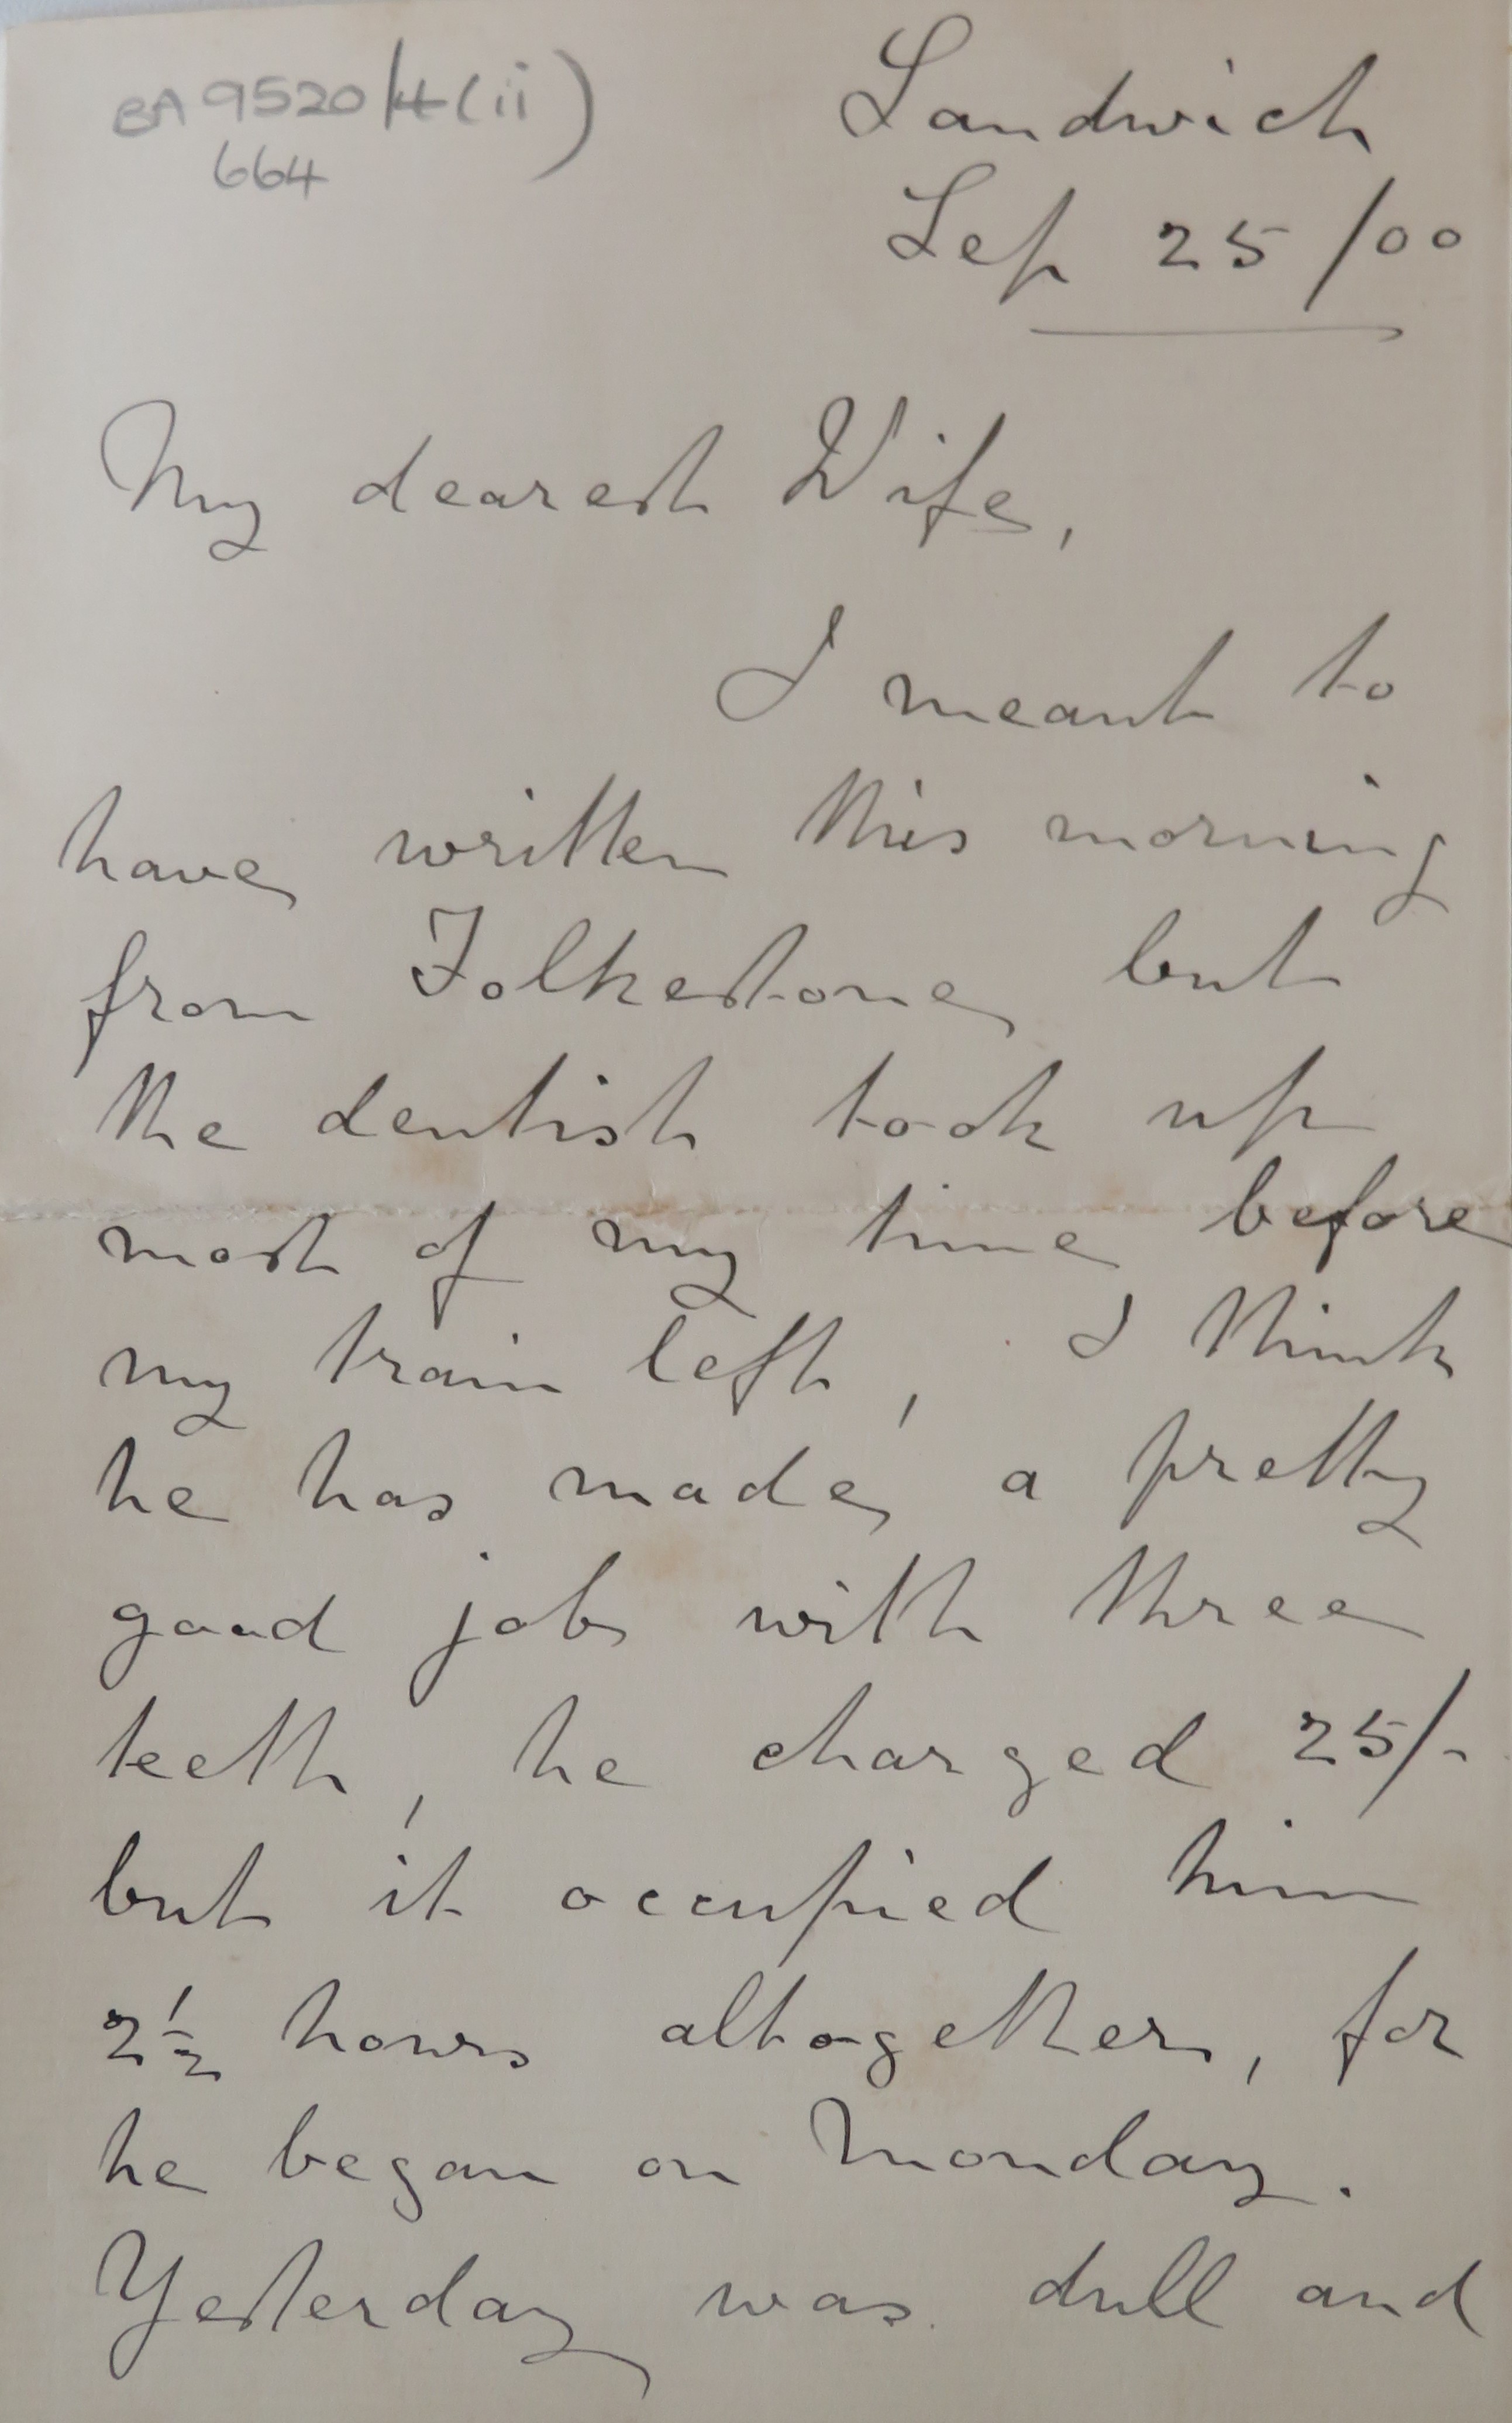 BA 9520/4(ii)
664
Sandwich
Sep 25/00
My dearest Wife,
I meant to
have written this morning
from Folkestone but
the dentist took up
most of my time before
my train left, I think
he has made a pretty
good job with three
teeth, he charged 25/-
but it occupied him
2½ hours altogether, for
he began on Monday.
Yesterday was dull and